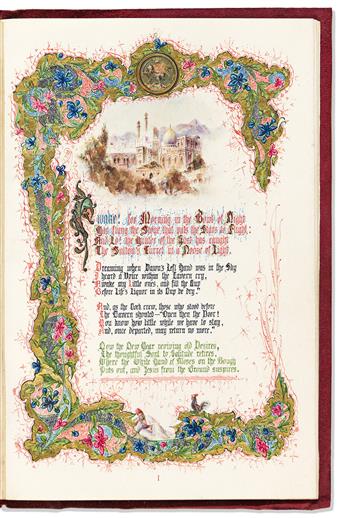 Awake! for Morning in the Bowl of Night
Has flung the Stone that puts the Stars to Flight:
And Lo! the Hunter of the East has caught
The Sultan's Turret in a Noose of Light.
Dreaming when Dawn's Left Hand was in the Sky
I heard a Voice within the Tavern cry,
Awake my Little ones, and fill the Cup
Before Life's Liquor in its Cup be dry."
And, as the Cock crew, those who stood before
The Tavern shouted—"Open then the Door!
You know how little while we have to stay,
And, once departed, may return no more."
Now the New Year reviving old Desires,
The thoughtful Soul to Solitude retires,
Where the White Hand of Moses on the Bough
Puts out, and Jesus from the Ground suspires.
1